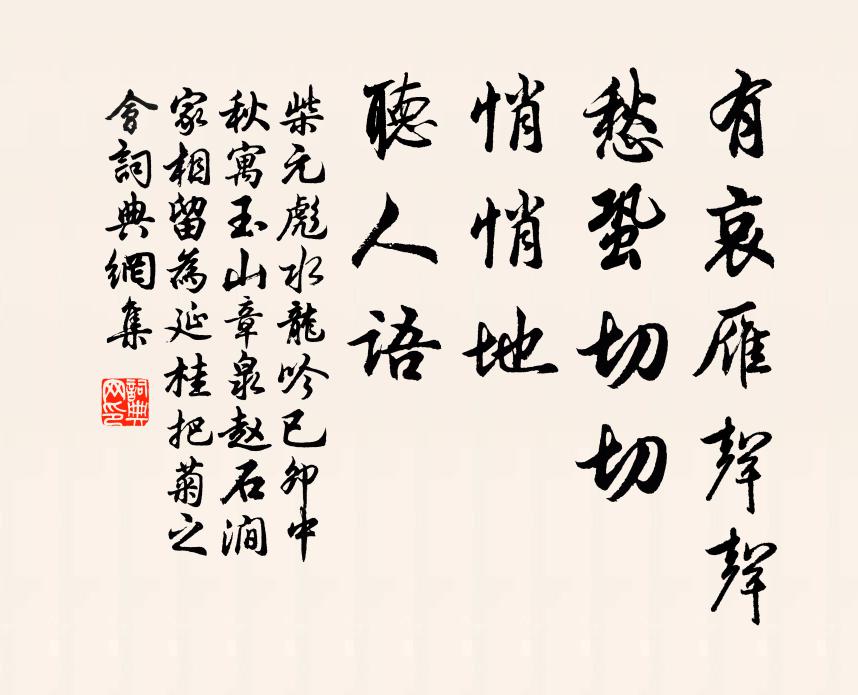 有哀雁聲聲
愁蛩切切
悄悄地
聽人語
柴元彪水龍吟己卯中
秋寓玉山章泉赵石澗
家相留為延桂把菊之
會詞典網集
詞典网印